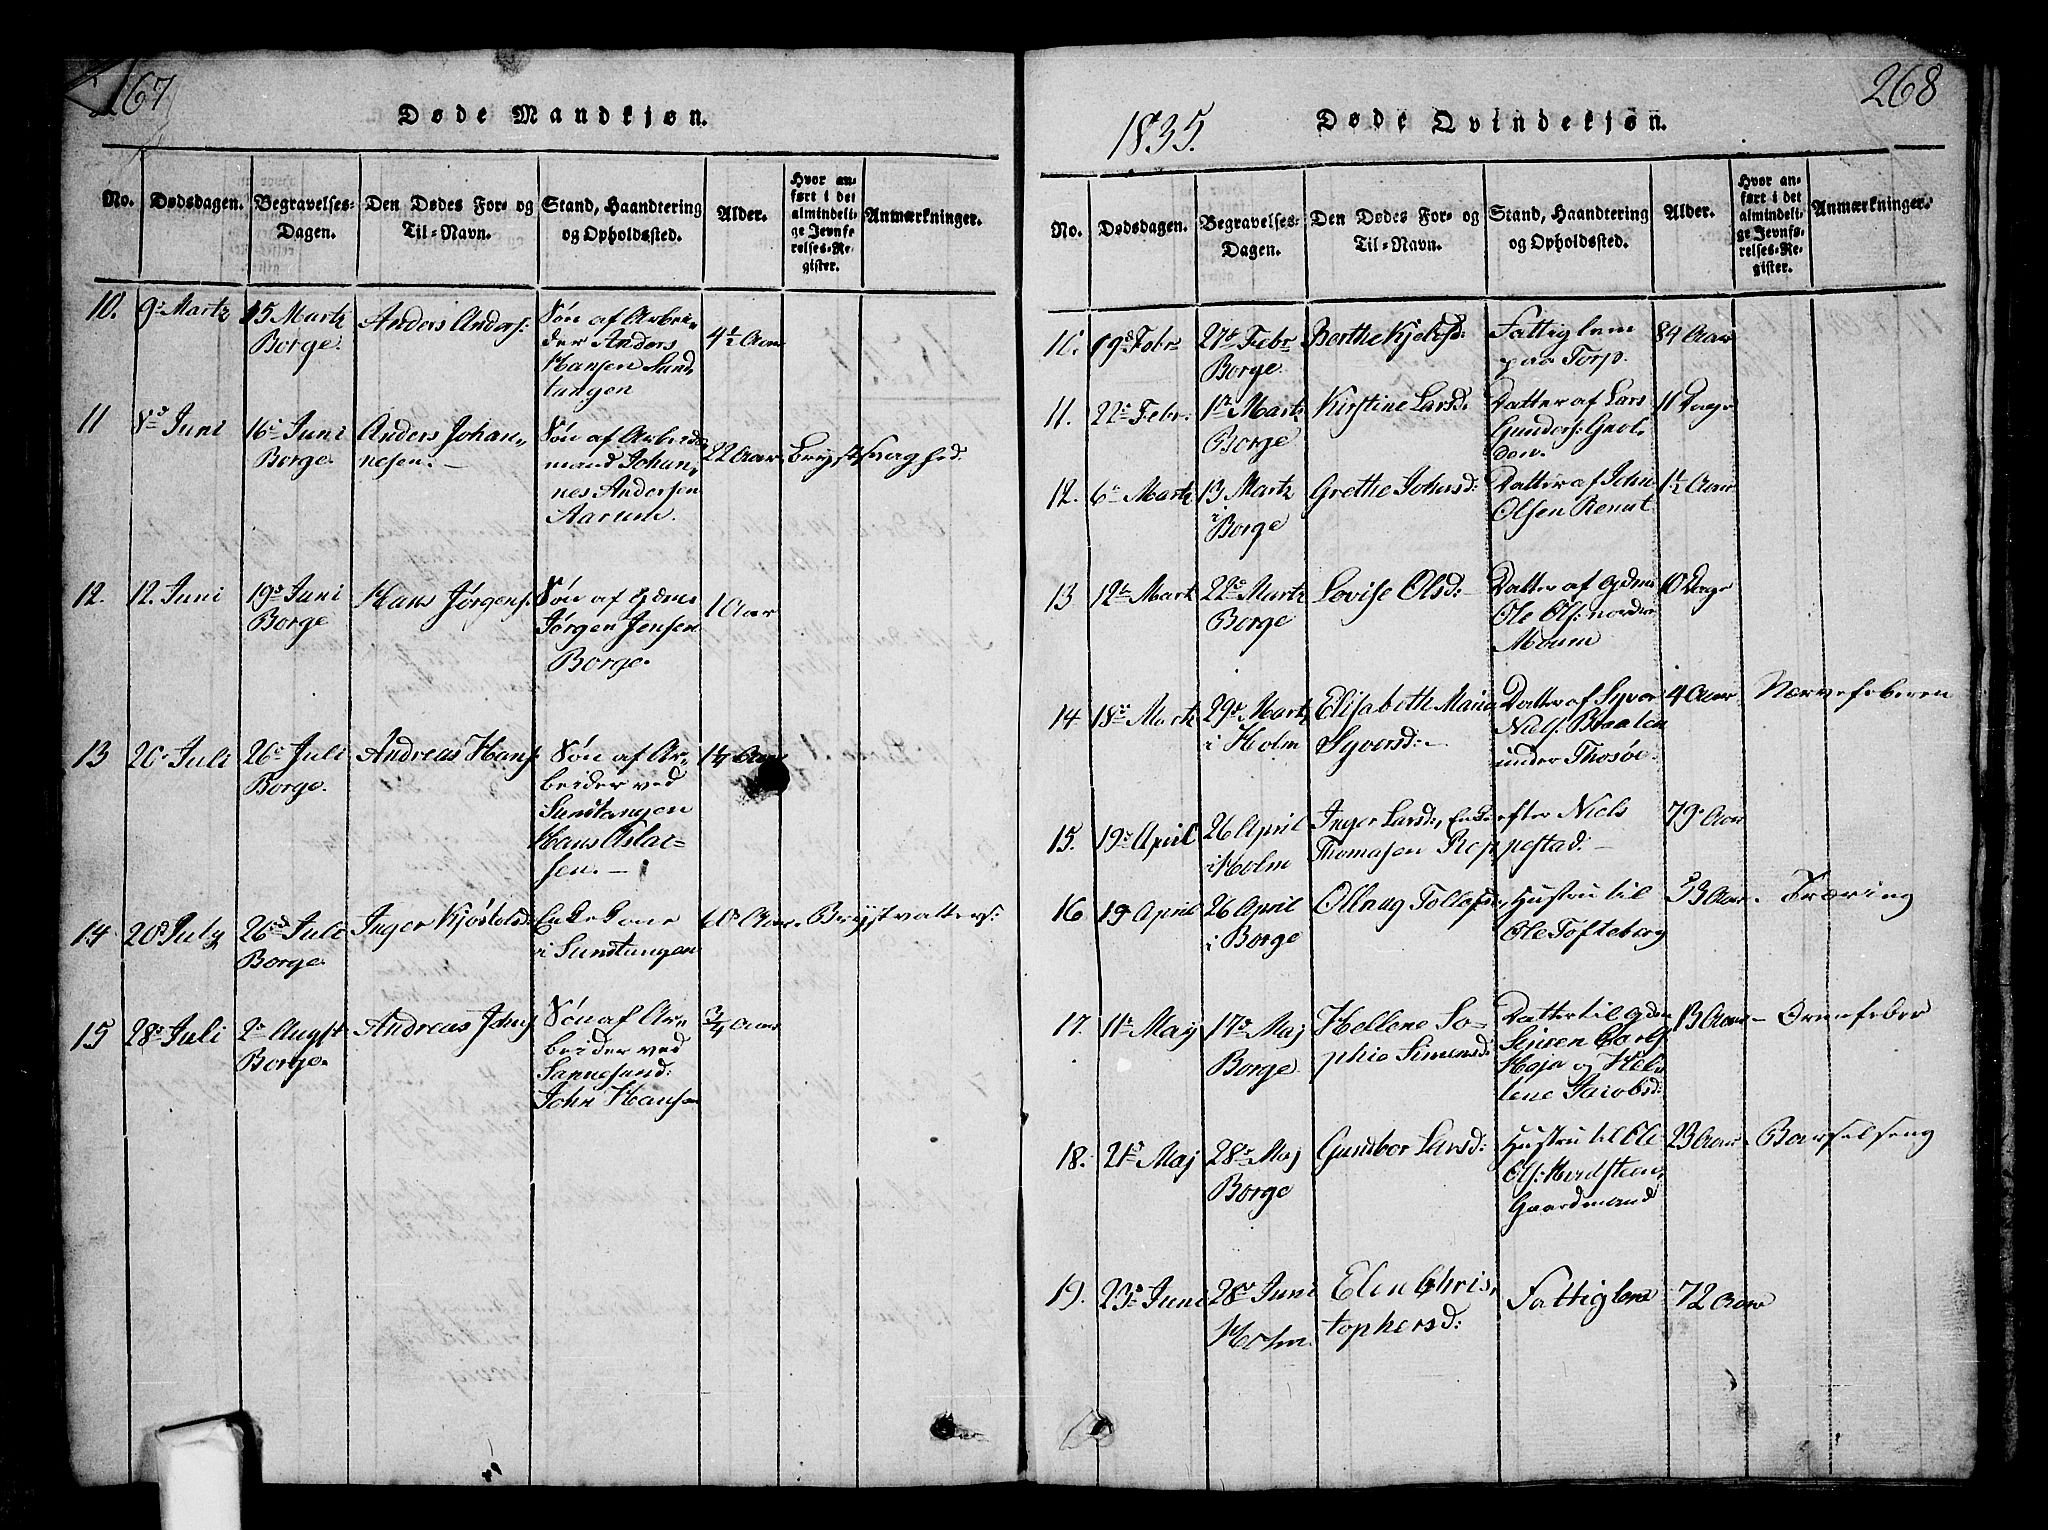 267
Døde Mandkjøn.
No.
Dødsdagen.
Begravelses-
Dagen.
Den Dødes For- og
Til-Navn.
Stand, Haandtering
og Opholdssted.
Alder.
Hvor an-
ført i det
almindeli-
ge Jevnfø-
relses-Re-
gister.
Anmærkninger.
10.
9de Martz
15 Martz
Borge.
Anders Anders:
Søn af Arbei-
der Anders
Hansen Sund,
tangen
4½ Aar
11
8de Juni
16de Juni
Borge.
Anders Johan-
nesen. –
Søn af Arbeids
mand Johan,
nes Andersen
Aarum.
22 Aar
Brystsvaghed.
12.
12. Juni
19de Juni
Borge
Hans Jørgens:
Søn af Gdms
Jørgen Jensen
Borge.
1 Aar
13
20de Juli
26de Juli
Borge.
Andreas Hans:
Søn af Ar-
beider ved
Sundtangen
Hans Aslac-
sen. –
1¼ Aar
14
20de July
26de Juli
Borge.
Inger Kjøstolsd:
Enkekone
i Sundtangen
60 Aar.
Brystvatters:
15
28de Juli
2de Augst
Borge.
Andreas Johns:
Søn af Ar-
beider ved
Sannesund:
John Hansen
¾ Aar
1835.
268
Døde Qvindekjøn.
No.
Dødsdagen.
Begravelses-
Dagen.
Den Dødes For- og
Til-Navn.
Stand, Haandtering
og Opholdssted.
Alder.
Hvor an-
ført i det
almindeli-
ge Jevnfø-
relses-Re-
gister.
Anmærkninger.
10.
19de Febr
27de Febr
Borge
Berthe Kjelsd:
Fattiglem
paa Torp.
84 Aar
11.
22de Febr.
1ste Martz
Borge
Kirstine Larsd:
Datter af Lars
Gunders:
11 Dage
12.
6te Martz
13 Martz
i Borge
Grethe Johnsd:
Datter af John
Olsen
1½ Aar
13
12te Martz
22de Martz
Borge
Lovise Olsd: –
Datter af Gdm
Ole Ols: nordre
Moum
10 Dage
14
18de Martz
29de Martz
i Holm
Elisabeth Maria
Syversd: –
Datter af Syver
Niels: Braaten
under Thosøe.
4 Aar.
Nærvefeberen
15.
19de April
26 April
i Holm
Inger Larsd:, Enke efter Niels
Thomasen Roppestad: –
79 Aar
16
19 April
26 April
i Borge
Ollaug Tollefsd,
Hustru til
Ole Tofteberg
53 Aar.
Træring
17.
11te Maj
17de Maj
Borge
Hellene So-
phie Simensd:
Datter til Gdm
Simen Carls:
Haja og Hel-
lene Jacobsd:
13 Aar –
Ormefeber
18.
21de Maj
28de Maj
Borge
Gunbor Larsd:
Hustru til Ole
Ols:
Gaardmand
23 Aar –
Barselseng
19.
23de Juni
28de Juni
Holm.
Elen Chris,
tophersd:
Fattiglem
72 Aar